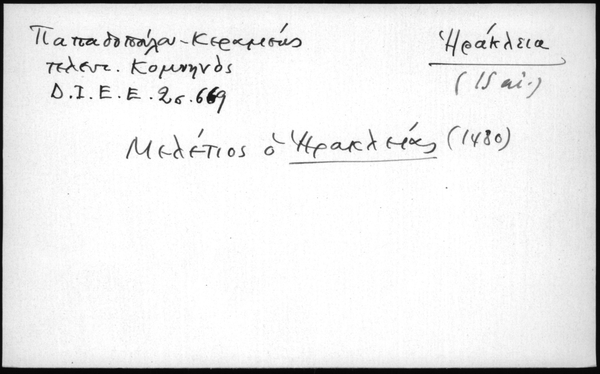 Παπαδοπούλου-Κεραμεύς
τελευτ. Κομνηνὸς
Δ.Ι.Ε.Ε. 2σ. 669
Ἡράκλεια
(15 αἰ.)
Μελέτιος ὁ Ἡρακλείας (1480)